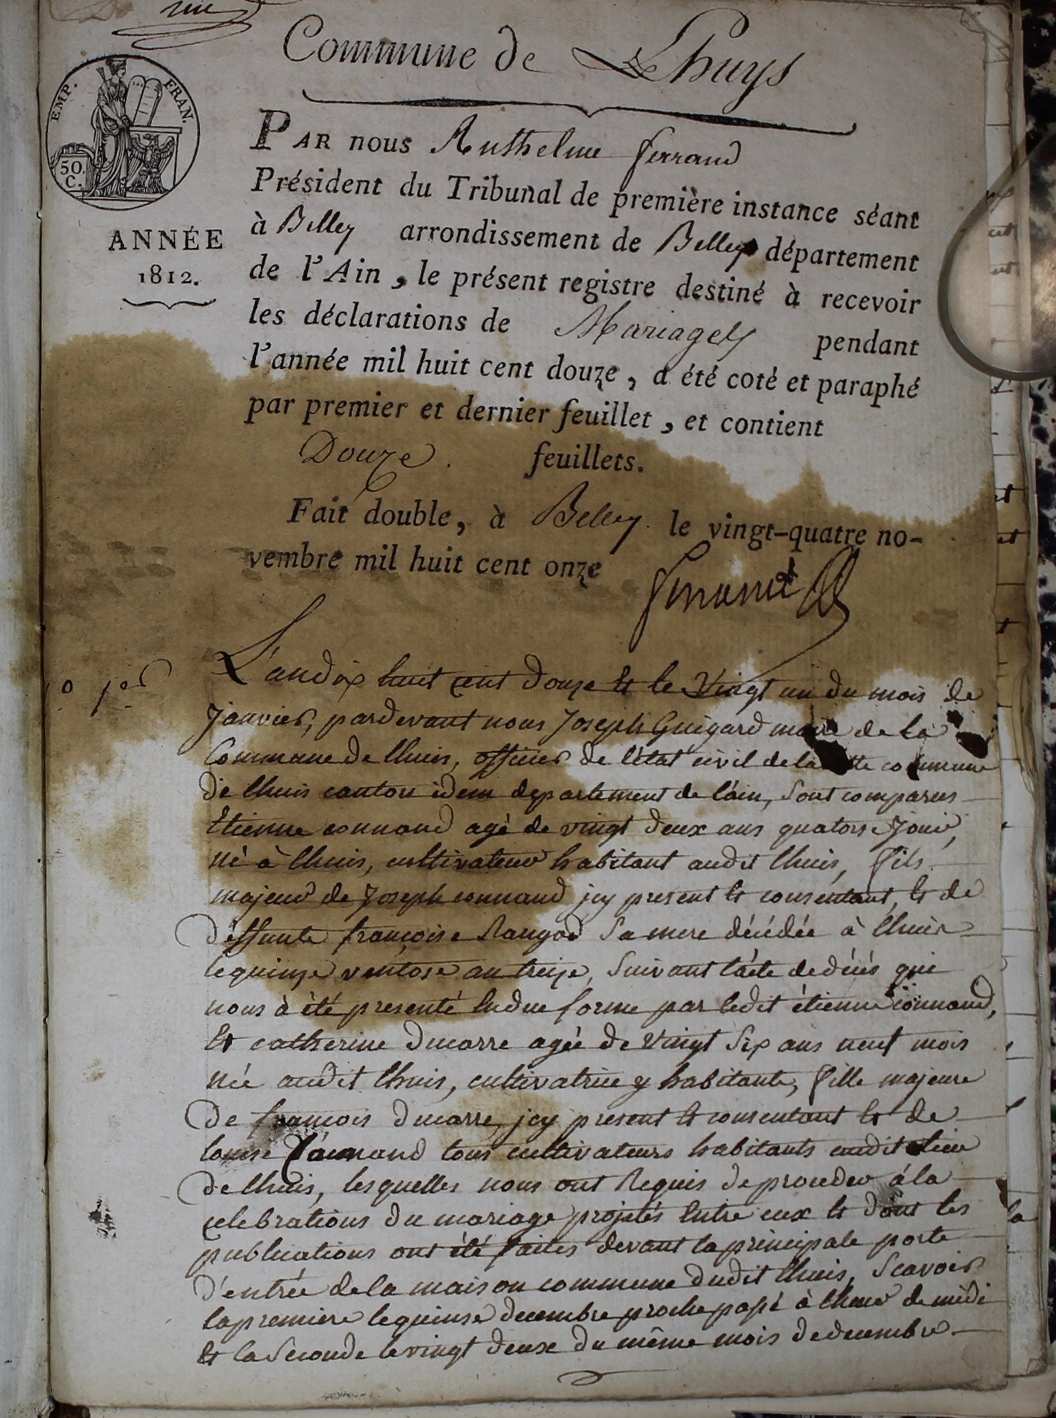 Commune de Lhuys
EMP. FRAN.
50. C.
ANNÉE
1812.
PAR nous Anthelme ferrand
Président du Tribunal de première instance séant
à Belley arrondissement de Belley département
de l'Ain, le présent registre destiné à recevoir
les déclarations de Mariages pendant
l'année mil huit cent douze, a été coté et paraphé
par premier et dernier feuillet, et contient
Douze. feuillets.
Fait double, à Belley le vingt-quatre no-
vembre mil huit cent onze
ferrand
L'andix huit cent douze et le Vingt un du mois de
Janvier, pardevant nous Joseph Guigard maire de la
Commune de lhuis, officier de l'état civil de la commune
de lhuis canton idem departement de l'ain, sont comparus
Etienne connand agé de vingt deux ans quatorze jours,
né à lhuis, cultivateur habitant audit lhuis, fils
majeur de Joseph connand jcy present et consentant, et de
deffunte françoise Sa mere décédée à lhuis
le quinze ventose an treize, Suivant l'acte de décés qui
nous à été presenté en due forme par ledit étienne connand,
Et catherine ducarre agée de Vingt Six ans neuf mois
née audit lhuis, cultivatrice y habitante, fille majeure
De françois Ducarre, jcy present et consentant et de
louise tous cultivateurs habitants audit lieu
de lhuis, lesquelles nous ont Requis de proceder à la
celebrations du mariage projetés Entre eux et dont les
publications ont été faites devant la principale porte
d'entrée de la maison commune dudit lhuis, Scavoir
la premiere le quinze decembre proche passé à lheure de midi
Et la Seconde le vingt deux du même mois de decembre